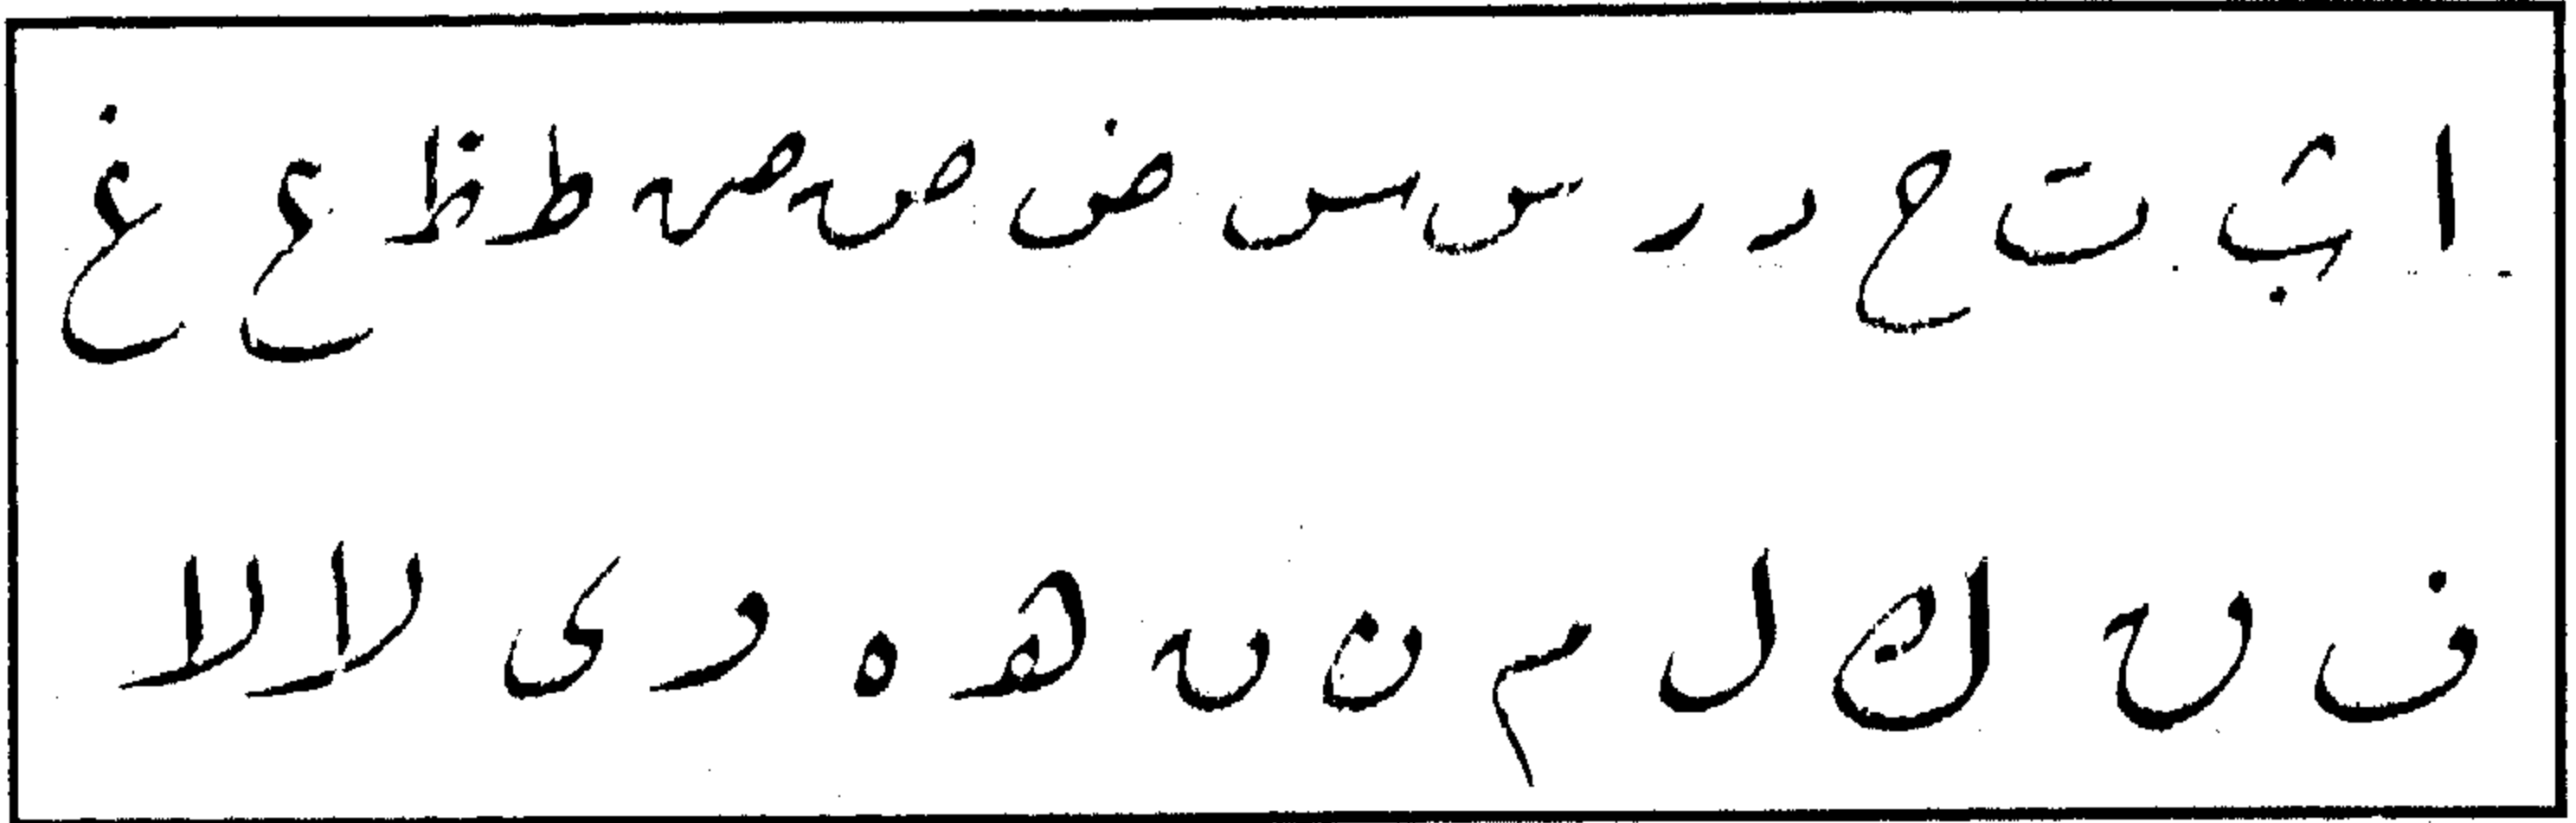 ا ب ت ح د ر س س ض ص ص ط ظ ع غ
ف ق ك ل م ن ن ه ه و ى لا لا